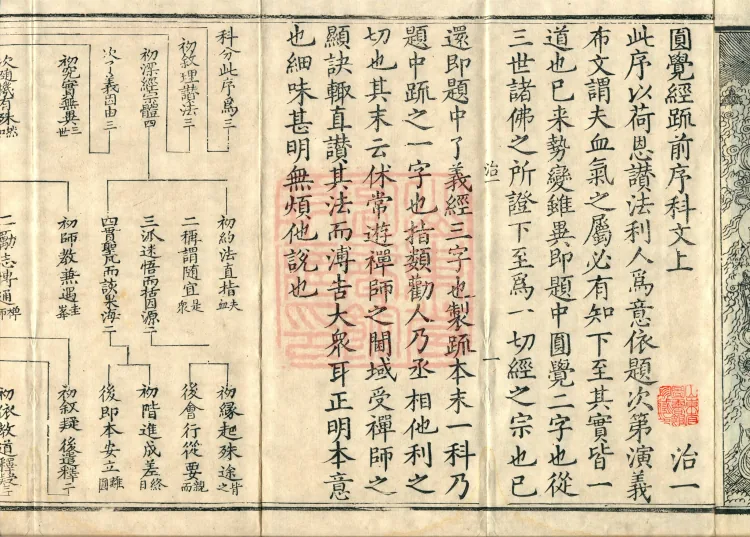 圓覺經䟽前序科文上 治一
此序以荷恩讃法利人爲意依題次第演義
布文謂夫血氣之屬必有知下至其實皆一
道也已来勢變雖異即題中圓覺二字也從
三世諸佛之所證下至爲一切經之宗也已
治一 一
還即題中了義經三字也製䟽本末一科乃
題中䟽之一字也指類勸人乃丞相他利之
切也其末云伏常遊禪師之閫域受禪師之
顯訣輙直讃其法而溥告大衆耳正明本意
也細味甚明無煩他說也
科分此序爲三
初敘理讃法三
初深經宗體四
次了義因由三
初究實無異三世
次隨機有殊
初約法直指夫血
二稱謂隨宜是衆
三派迷悟而指源二
四貫聖凢而談果海二
初師教兼遇圭峯
二勵志博通禪師
初緣起殊途皆之
後會行從要親而
初階進成差終日
後即本安立離圓
初敘疑
後遣釋二
初依教道釋